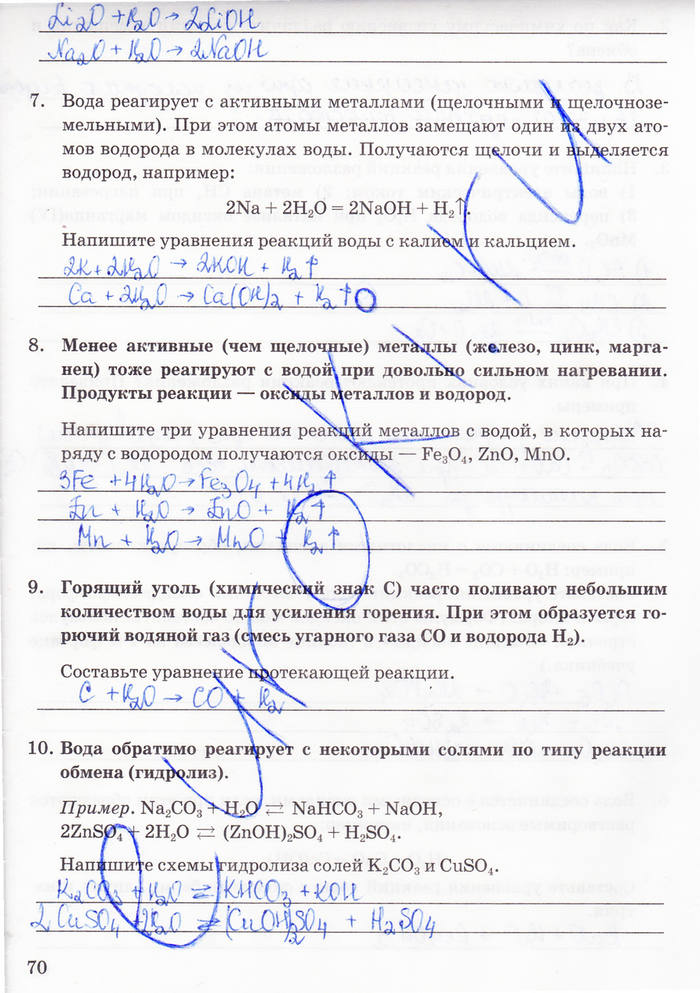 Li₂O + H₂O → 2LiOH
Na₂O + H₂O → 2NaOH
7. Вода реагирует с активными металлами (щелочными и щелочнозе-
мельными). При этом атомы металлов замещают один из двух ато-
мов водорода в молекулах воды. Получаются щелочи и выделяется
водород, например:
2Na + 2H₂O = 2NaOH + H₂↑.
Напишите уравнения реакций воды с калием и кальцием.
2K + 2H₂O → 2KOH + H₂↑
Ca + 2H₂O → Ca(OH)₂ + H₂↑
8. Менее активные (чем щелочные) металлы (железо, цинк, марга-
нец) тоже реагируют с водой при довольно сильном нагревании.
Продукты реакции — оксиды металлов и водород.
Напишите три уравнения реакций металлов с водой, в которых на-
ряду с водородом получаются оксиды — Fe₃O₄, ZnO, MnO.
3Fe + 4H₂O → Fe₃O₄ + 4H₂↑
Zn + H₂O → ZnO + H₂↑
Mn + H₂O → MnO + H₂↑
9. Горящий уголь (химический знак С) часто поливают небольшим
количеством воды для усиления горения. При этом образуется го-
рючий водяной газ (смесь угарного газа CO и водорода H₂).
Составьте уравнение протекающей реакции.
C + H₂O → CO + H₂
10. Вода обратимо реагирует с некоторыми солями по типу реакции
обмена (гидролиз).
Пример. Na₂CO₃ + H₂O ⇄ NaHCO₃ + NaOH,
2ZnSO₄ + 2H₂O ⇄ (ZnOH)₂SO₄ + H₂SO₄.
Напишите схемы гидролиза солей K₂CO₃ и CuSO₄.
K₂CO₃ + H₂O ⇄ KHCO₃ + KOH
2CuSO₄ + 2H₂O ⇄ (CuOH)₂SO₄ + H₂SO₄
70